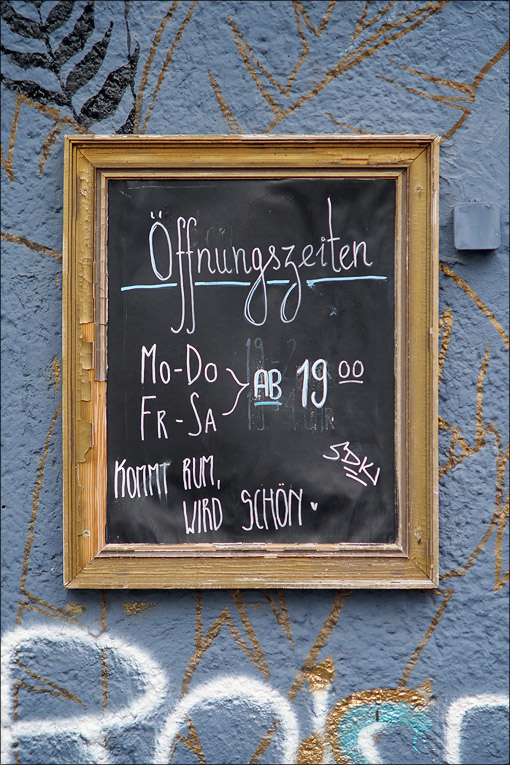 Öffnungszeiten
Mo-Do
Fr-Sa
AB 19 00
KOMMT RUM,
WIRD SCHÖN